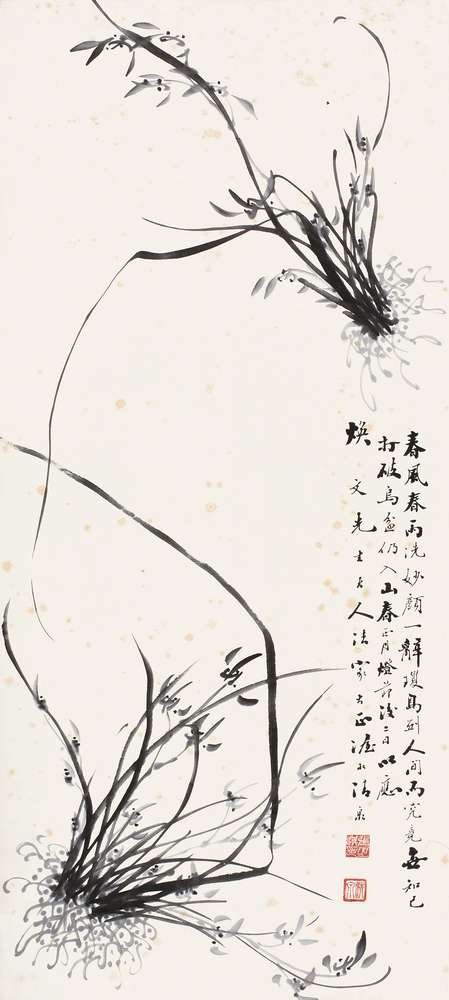 春風春雨洗妙顏一辭瓊島到人間而究竟無知己
打破烏盆仍入山春正月燈節後二日以應
煥文大人法家大正